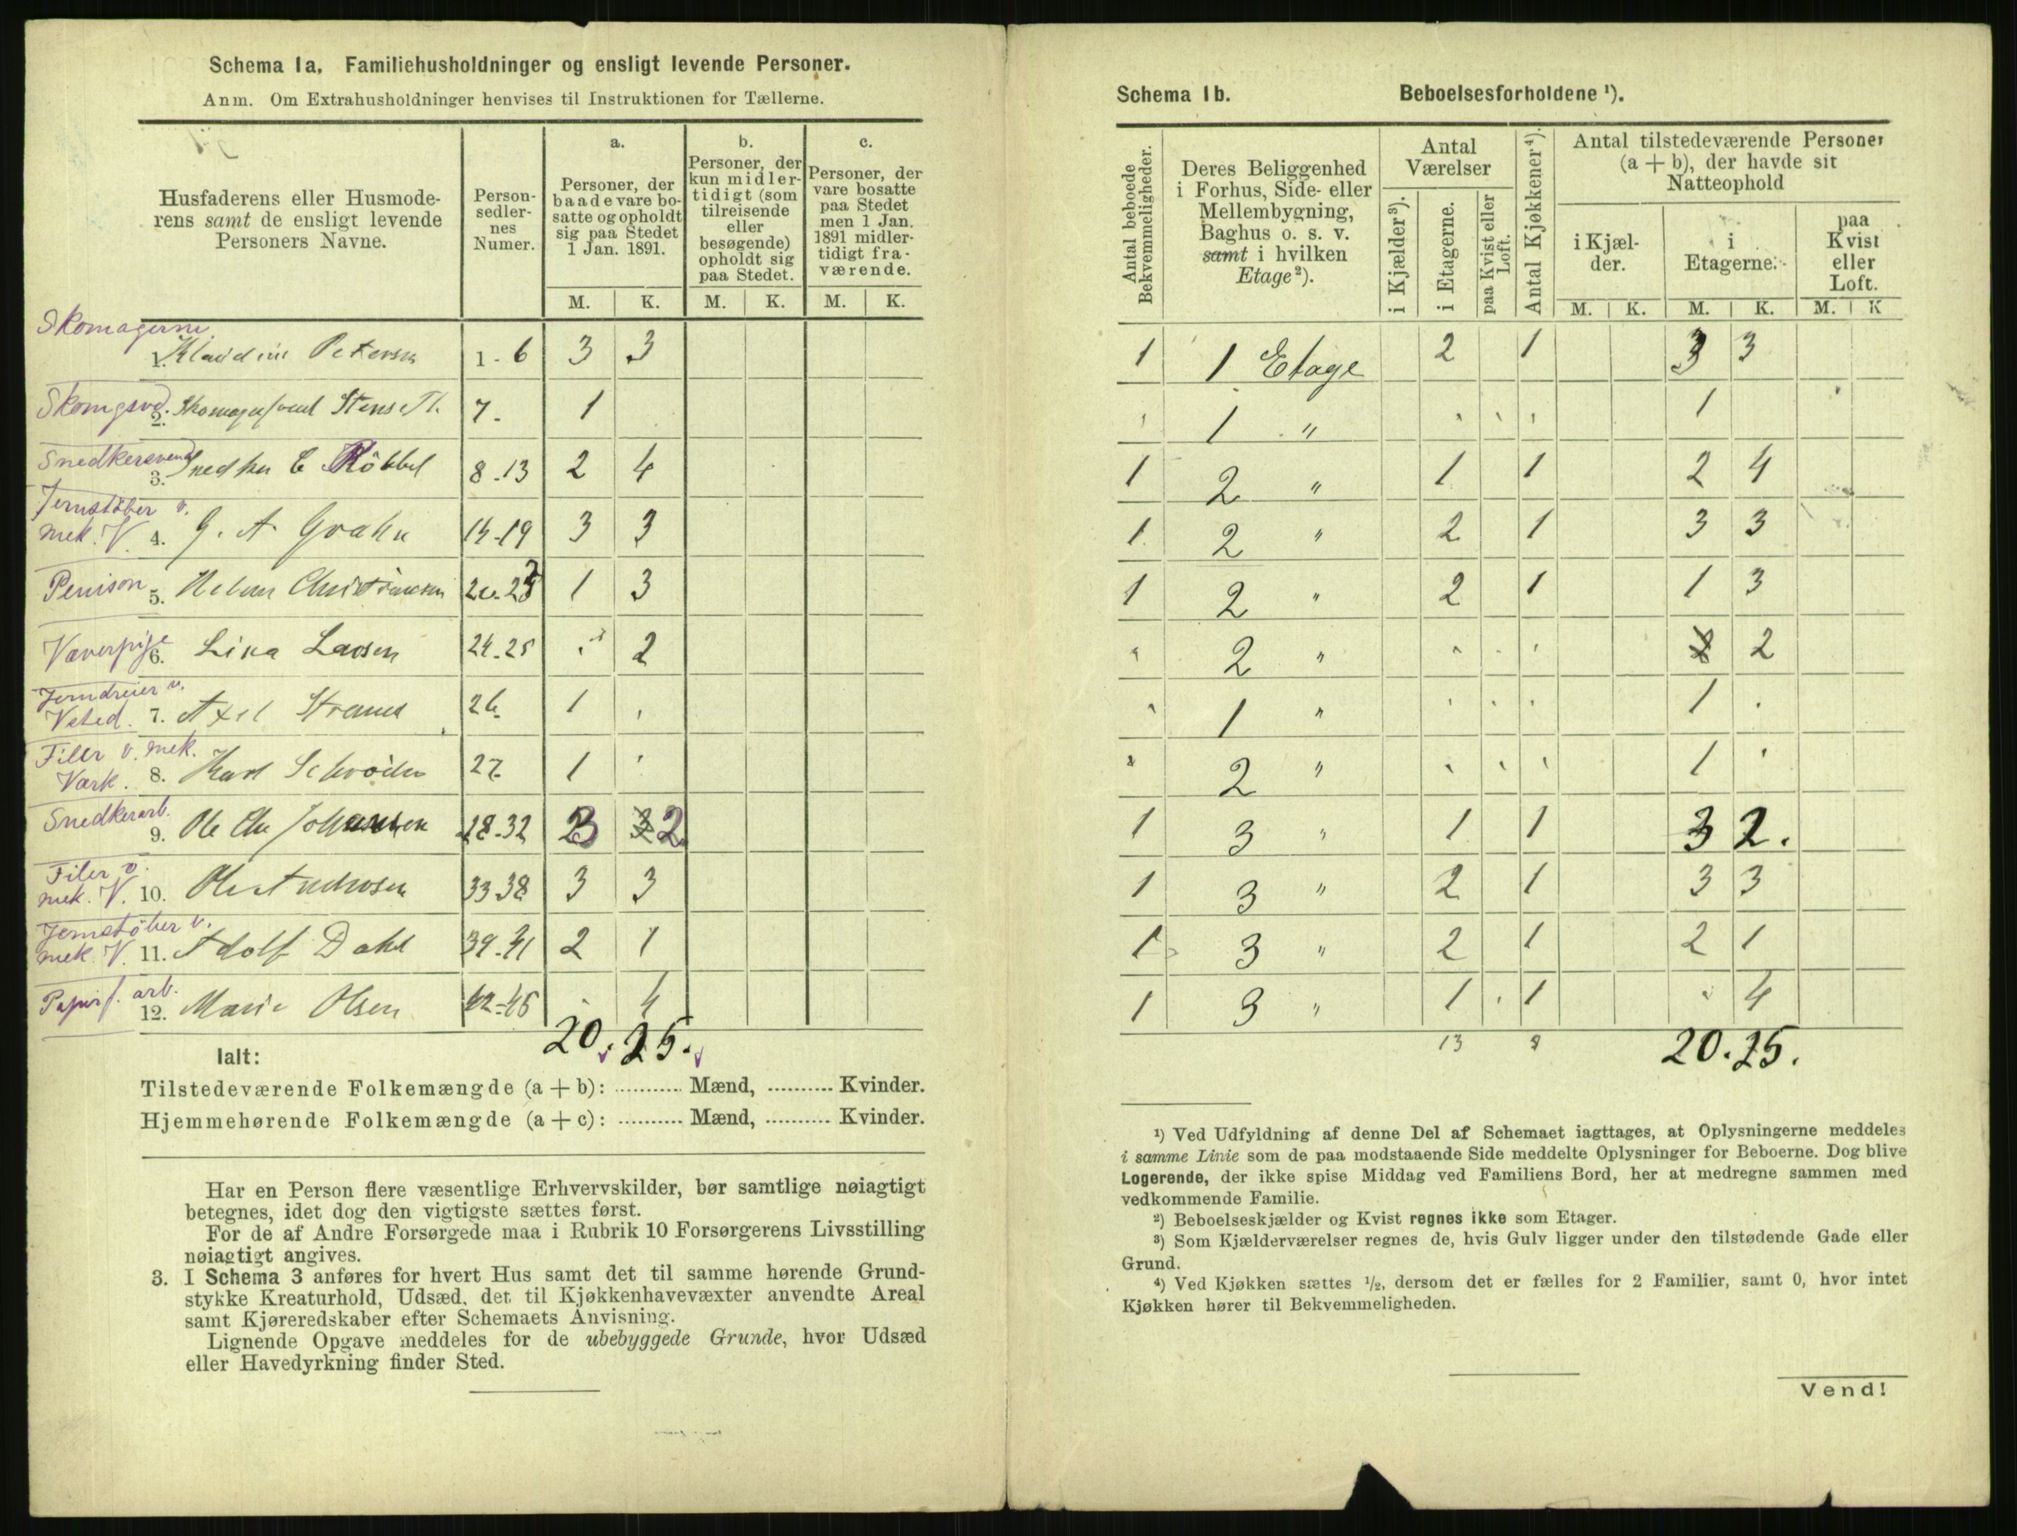 Schema 1a. Familiehusholdninger og ensligt levende Personer.
Anm. Om Extrahusholdninger henvises til Instruktionen for Tællerne.
Husfaderens eller Husmoderens samt de ensligt levende Personers Navne.
Personsedlernes Numer.
a. Personer, der baade vare bosatte og opholdt sig paa Stedet 1 Jan. 1891.
b. Personer, der kun midlertidigt (som tilreisende eller besøgende) opholdt sig paa Stedet.
c. Personer, der vare bosatte paa Stedet men 1 Jan. 1891 midlertidigt fraværende.
M. K. M. K. M. K.
Skomagerm.
1. Petersen 1-6 3 3
Skomgsvd. 2. 7. 1
Snedkersvend 3. Snedker C Röbbel 8-13 2 4
Jernstöber v. mek. V. 4. G. A. Grahn 14-19 3 3
Pension 5. Helene Christiansen 1 3
Væverpige 6. Lina Larsen 24-25 2
Jerndreier v. Vsted. 7. Axel 26 1
Filer v. mek. Værk. 8. Karl Schröder 27 1
Snedkerarb. 9. Ole Chr Johansen 28-32 3 2
Filer v. mek. V. 10. Ole Andersen 33-38 3 3
Jernstöber v. mek. V. 11. Adolf Dahl 39-41 2 1
Papirf. arb. 12. Marie Olsen 42-45 4
20. 25.
Ialt:
Tilstedeværende Folkemængde (a + b): .......... Mænd, .......... Kvinder.
Hjemmehørende Folkemængde (a + c): .......... Mænd, .......... Kvinder.
Har en Person flere væsentlige Erhvervskilder, bør samtlige nøiagtigt
betegnes, idet dog den vigtigste sættes først.
For de af Andre Forsørgede maa i Rubrik 10 Forsørgerens Livsstilling
nøiagtigt angives.
3. I Schema 3 anføres for hvert Hus samt det til samme hørende Grund-
stykke Kreaturhold, Udsæd, det til Kjøkkenhavevæxter anvendte Areal
samt Kjøreredskaber efter Schemaets Anvisning.
Lignende Opgave meddeles for de ubebyggede Grunde, hvor Udsæd
eller Havedyrkning finder Sted.
Schema 1b. Beboelsesforholdene ¹).
Antal beboede Bekvemmeligheder.
Deres Beliggenhed i Forhus, Side- eller Mellembygning, Baghus o. s. v. samt i hvilken Etage²).
Antal Værelser
i Kjælder³). i Etagerne. paa Kvist eller Loft.
Antal Kjøkkener⁴).
Antal tilstedeværende Personer (a + b), der havde sit Natteophold
i Kjælder. i Etagerne. paa Kvist eller Loft.
M. K. M. K. M. K
1 1 Etage 2 1 3 3
1 " 1
1 2 " 1 1 2 4
1 2 " 2 1 3 3
1 2 " 2 1 1 3
" 2 " 2
" 1 " 1
" 2 " 1
1 3 " 1 1 3 2.
1 3 " 2 1 3 3
1 3 " 2 1 2 1
1 3 " 1 1 4
13 20. 25.
¹) Ved Udfyldning af denne Del af Schemaet iagttages, at Oplysningerne meddeles
i samme Linie som de paa modstaaende Side meddelte Oplysninger for Beboerne. Dog blive
Logerende, der ikke spise Middag ved Familiens Bord, her at medregne sammen med
vedkommende Familie.
²) Beboelseskjælder og Kvist regnes ikke som Etager.
³) Som Kjælderværelser regnes de, hvis Gulv ligger under den tilstødende Gade eller
Grund.
⁴) Ved Kjøkken sættes ¹/₂, dersom det er fælles for 2 Familier, samt 0, hvor intet
Kjøkken hører til Bekvemmeligheden.
Vend!